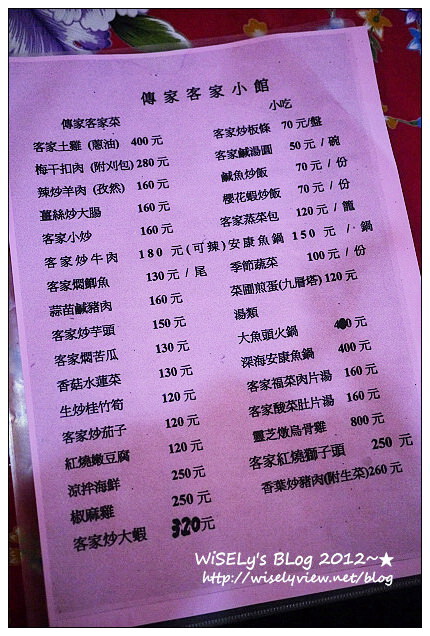 傳家客家小館
傳家客家菜
客家土雞 (蔥油) 400元
梅干扣肉 (附刈包) 280元
辣炒羊肉 (孜然) 160元
薑絲炒大腸 160元
客家小炒 160元
客家炒牛肉 180 元(可辣)
客家燜鯽魚 130元 / 尾
蒜苗鹹豬肉 160元
客家炒芋頭 150元
客家燜苦瓜 130元
香菇水蓮菜 130元
生炒桂竹筍 120元
客家炒茄子 120元
紅燒嫩豆腐 120元
涼拌海鮮 250元
椒麻雞 250元
客家炒大蝦 320元
小吃
客家炒板條 70元/盤
客家鹹湯圓 50元 / 碗
鹹魚炒飯 70元 / 份
櫻花蝦炒飯 70元 / 份
客家蒸菜包 120元 / 籠
安康魚鍋 150 元 / 鍋
季節蔬菜 100元 / 份
菜圃煎蛋(九層塔) 120元
湯類
大魚頭火鍋 400元
深海安康魚鍋 400元
客家福菜肉片湯 160元
客家酸菜肚片湯 160元
靈芝燉烏骨雞 800元
客家紅燒獅子頭 250 元
香葉炒豬肉(附生菜)260元
WiSELy's BLog 2012~★
http://wiselyview.net/blog